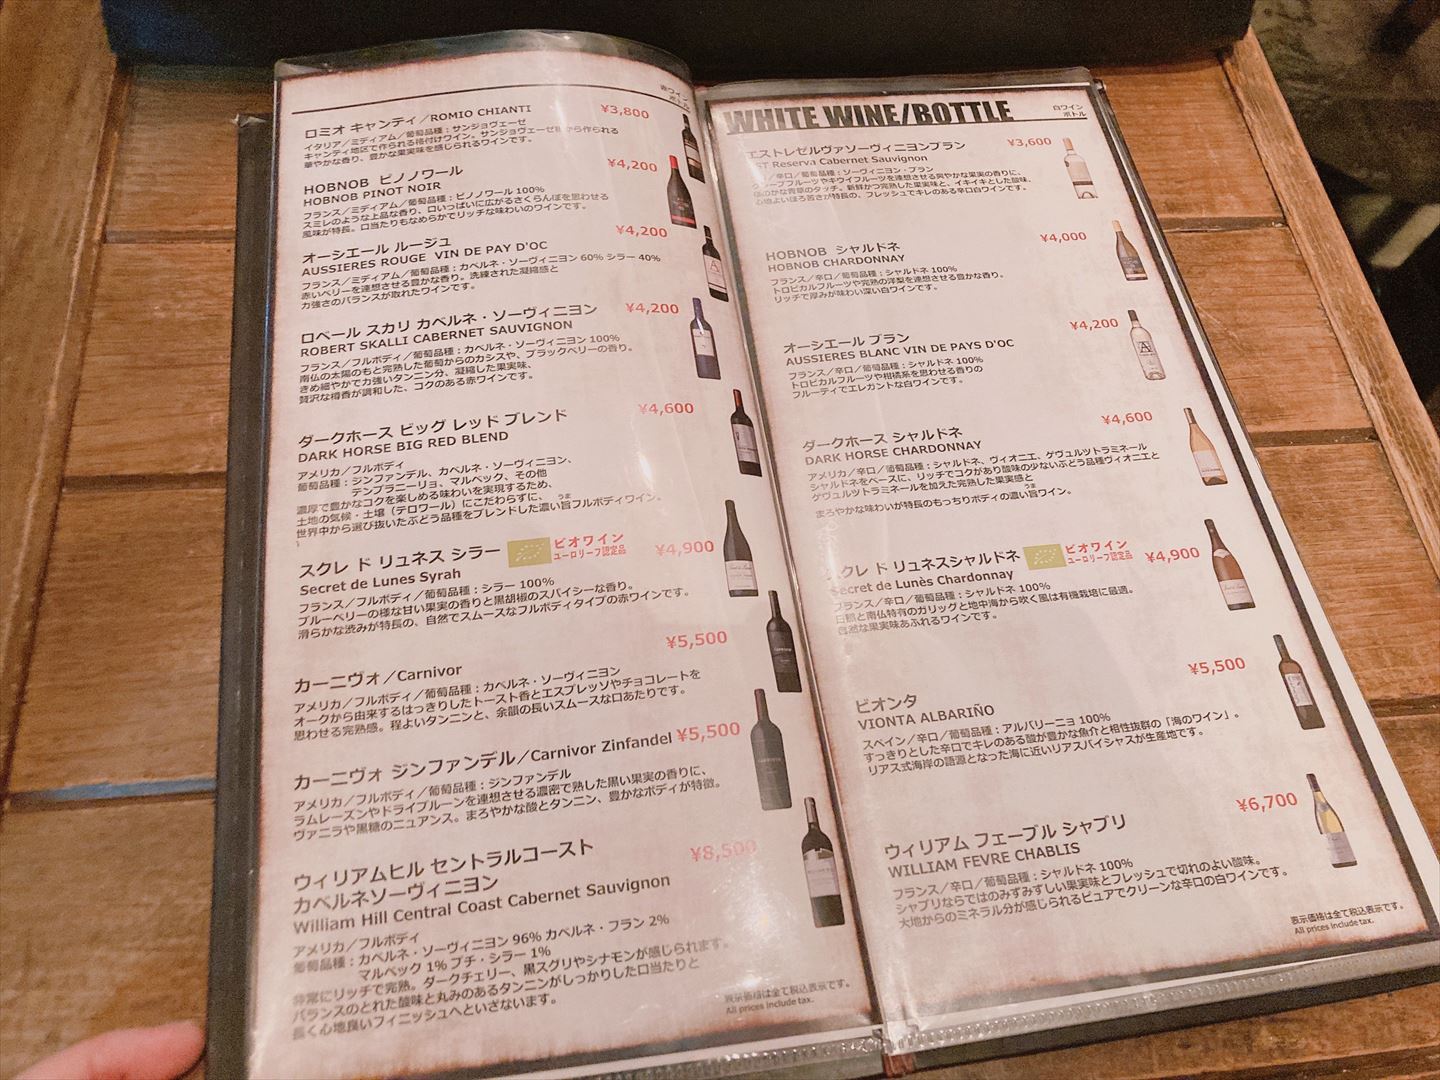 赤ワイン
ボトル
ロミオ キャンティ／ROMIO CHIANTI ¥3,800
イタリア／ミディアム／葡萄品種：サンジョヴェーゼ
キャンティ地区で作られる格付けワイン。サンジョヴェーゼ種から作られる
華やかな香り、豊かな果実味を感じられるワインです。
HOBNOB ピノノワール ¥4,200
HOBNOB PINOT NOIR
フランス／ミディアム／葡萄品種：ピノノワール 100%
スミレのような上品な香り、口いっぱいに広がるさくらんぼを思わせる
風味が特長。口当たりもなめらかでリッチな味わいのワインです。
オーシエール ルージュ ¥4,200
AUSSIERES ROUGE VIN DE PAY D'OC
フランス／ミディアム／葡萄品種：カベルネ・ソーヴィニヨン 60% シラー 40%
赤いベリーを連想させる豊かな香り。洗練された凝縮感と
力強さのバランスが取れたワインです。
ロベール スカリ カベルネ・ソーヴィニヨン ¥4,200
ROBERT SKALLI CABERNET SAUVIGNON
フランス／フルボディ／葡萄品種：カベルネ・ソーヴィニヨン 100%
南仏の太陽のもと完熟した葡萄からのカシスや、ブラックベリーの香り。
きめ細やかで力強いタンニン分、凝縮した果実味、
贅沢な樽香が調和した、コクのある赤ワインです。
ダークホース ビッグ レッド ブレンド ¥4,600
DARK HORSE BIG RED BLEND
アメリカ／フルボディ
葡萄品種：ジンファンデル、カベルネ・ソーヴィニヨン、
テンプラニーリョ、マルベック、その他
濃厚で豊かなコクを楽しめる味わいを実現するため、
土地の気候・土壌（テロワール）にこだわらずに、
世界中から選び抜いたぶどう品種をブレンドした濃い旨フルボディワイン。
スクレ ド リュネス シラー ビオワイン ユーロリーフ認定品 ¥4,900
Secret de Lunes Syrah
フランス／フルボディ／葡萄品種：シラー 100%
ブルーベリーの様な甘い果実の香りと黒胡椒のスパイシーな香り。
滑らかな渋みが特長の、自然でスムースなフルボディタイプの赤ワインです。
カーニヴォ／Carnivor ¥5,500
アメリカ／フルボディ／葡萄品種：カベルネ・ソーヴィニヨン
オークから由来するはっきりしたトースト香とエスプレッソやチョコレートを
思わせる完熟感。程よいタンニンと、余韻の長いスムースな口あたりです。
カーニヴォ ジンファンデル／Carnivor Zinfandel ¥5,500
アメリカ／フルボディ／葡萄品種：ジンファンデル
ラムレーズンやドライプルーンを連想させる濃密で熟した黒い果実の香りに、
ヴァニラや黒糖のニュアンス。まろやかな酸とタンニン、豊かなボディが特徴。
ウィリアムヒル セントラルコースト ¥8,500
カベルネソーヴィニヨン
William Hill Central Coast Cabernet Sauvignon
アメリカ／フルボディ
葡萄品種：カベルネ・ソーヴィニヨン 96% カベルネ・フラン 2%
マルベック 1% プチ・シラー 1%
非常にリッチで完熟。ダークチェリー、黒スグリやシナモンが感じられます。
バランスのとれた酸味と丸みのあるタンニンがしっかりした口当たりと
長く心地良いフィニッシュへといざないます。
表示価格は全て税込表示です。
All prices include tax.
WHITE WINE/BOTTLE 白ワイン
ボトル
エストレゼルヴァソーヴィニヨンブラン ¥3,600
EST Reserva Cabernet Sauvignon
／辛口／葡萄品種：ソーヴィニヨン・ブラン
グレープフルーツやキウイフルーツを連想させる爽やかな果実の香りに、
ほのかな青草のタッチ。新鮮かつ完熟した果実味と、イキイキとした酸味、
心地よいほろ苦さが特長の、フレッシュでキレのある辛口白ワインです。
HOBNOB シャルドネ ¥4,000
HOBNOB CHARDONNAY
フランス／辛口／葡萄品種：シャルドネ 100%
トロピカルフルーツや完熟の洋梨を連想させる豊かな香り。
リッチで厚みが味わい深い白ワインです。
オーシエール ブラン ¥4,200
AUSSIERES BLANC VIN DE PAYS D'OC
フランス／辛口／葡萄品種：シャルドネ 100%
トロピカルフルーツや柑橘系を思わせる香りの
フルーティでエレガントな白ワインです。
ダークホース シャルドネ ¥4,600
DARK HORSE CHARDONNAY
アメリカ／辛口／葡萄品種：シャルドネ、ヴィオニエ、ゲヴュルツトラミネール
シャルドネをベースに、リッチでコクがあり酸味の少ないぶどう品種ヴィオニエと
ゲヴュルツトラミネールを加えた完熟した果実感と
まろやかな味わいが特長のもっちりボディの濃い旨ワイン。
スクレ ド リュネスシャルドネ ビオワイン ユーロリーフ認定品 ¥4,900
Secret de Lunès Chardonnay
フランス／辛口／葡萄品種：シャルドネ 100%
日照と南仏特有のガリッグと地中海から吹く風は有機栽培に最適。
自然な果実味あふれるワインです。
ビオンタ ¥5,500
VIONTA ALBARIÑO
スペイン／辛口／葡萄品種：アルバリーニョ 100%
すっきりとした辛口でキレのある酸が豊かな魚介と相性抜群の「海のワイン」。
リアス式海岸の語源となった海に近いリアスバイシャスが生産地です。
ウィリアム フェーブル シャブリ ¥6,700
WILLIAM FEVRE CHABLIS
フランス／辛口／葡萄品種：シャルドネ 100%
シャブリならではのみずみずしい果実味とフレッシュで切れのよい酸味。
大地からのミネラル分が感じられるピュアでクリーンな辛口の白ワインです。
表示価格は全て税込表示です。
All prices include tax.